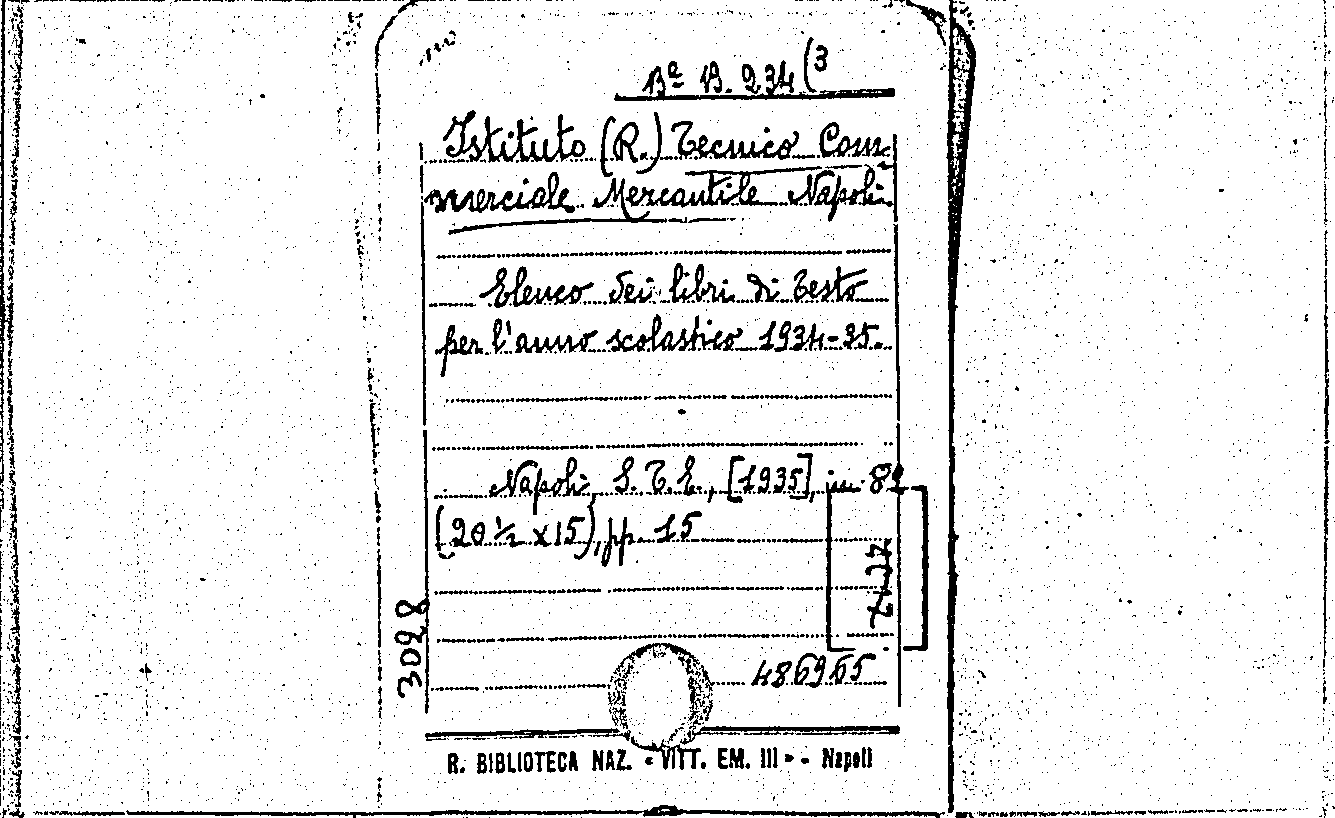 Bª B. 234 (3
Istituto (R.) Tecnico Com-
merciale Mercantile Napoli.
Elenco dei libri di testo
per l'anno scolastico 1934-35.
Napoli, S. T. E., [1935], in 8º
(20 ½ x 15), pp. 15
3028
486965
R. BIBLIOTECA NAZ. « VITT. EM. III » - Napoli